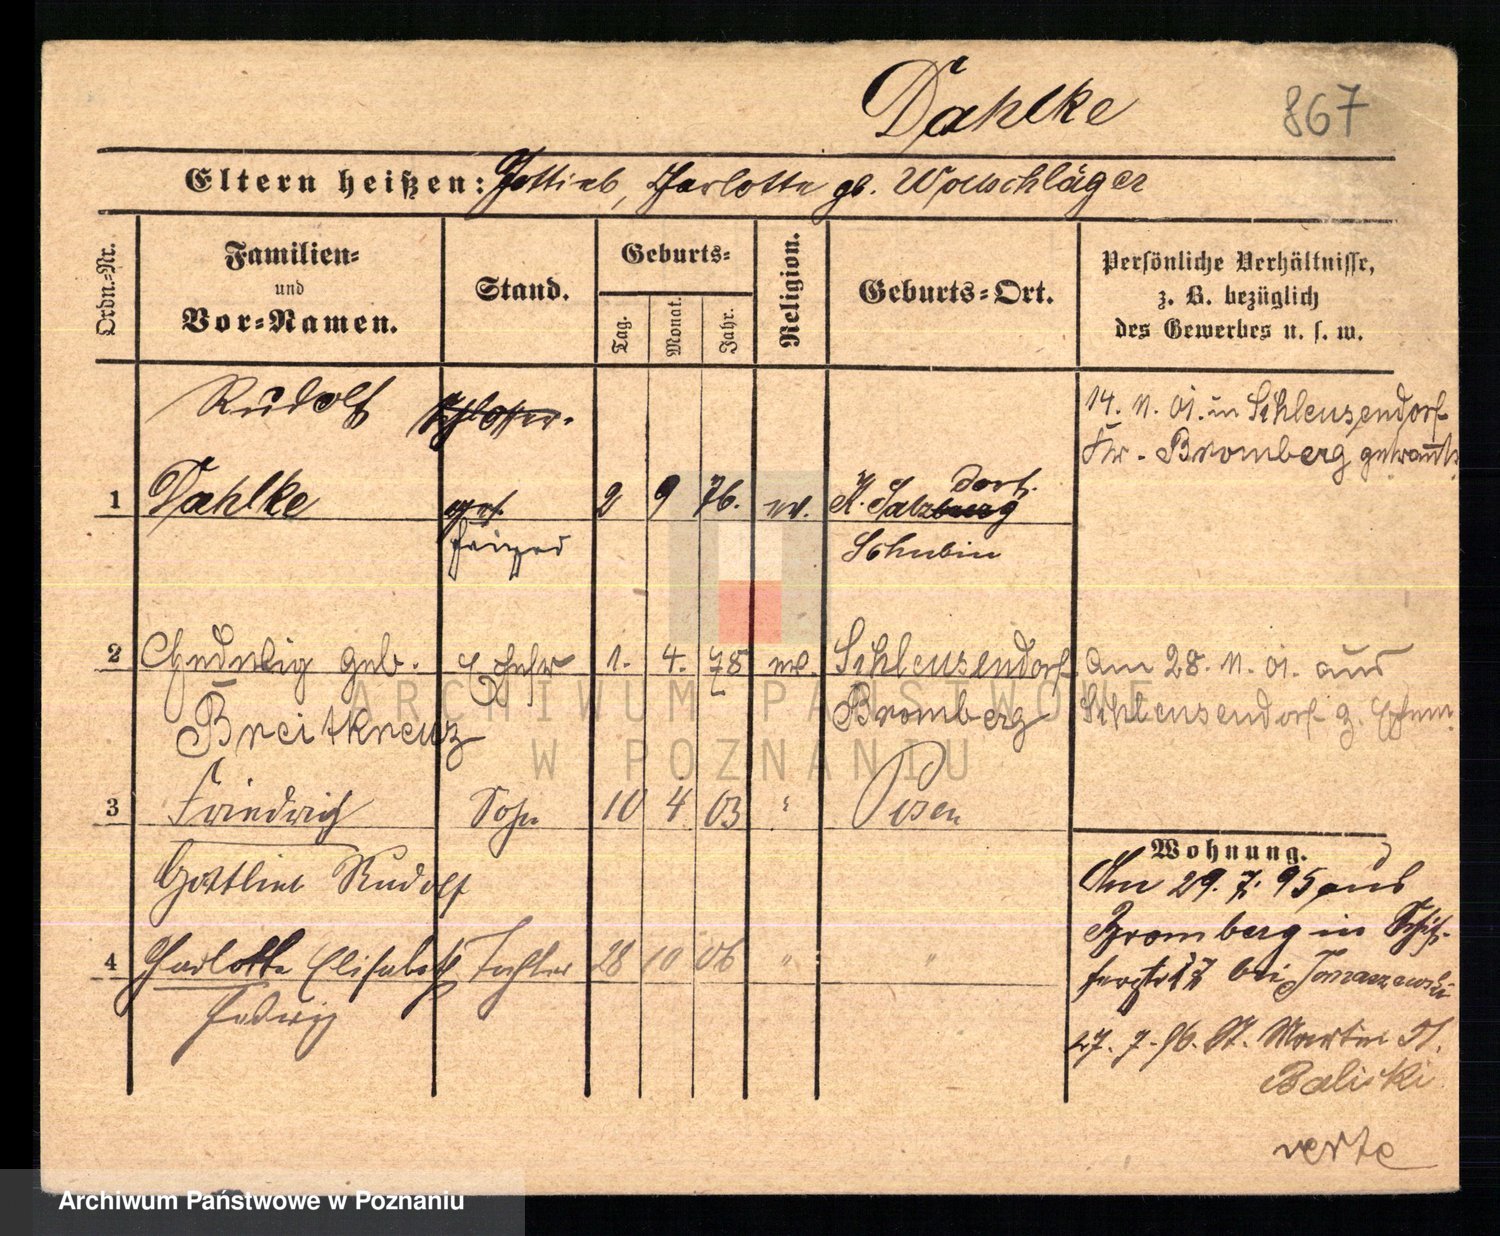 Dahlke 867
Eltern heißen: Gottlieb, Charlotte gb. Wollschläger
Ordn.-Nr.
Familien-
und
Vor-Namen.
Stand.
Geburts-
Tag.
Monat.
Jahr.
Religion.
Geburts-Ort.
Persönliche Verhältnisse,
z. B. bezüglich
des Gewerbes u. s. w.
Rudolf Schlosser.
14. 11. 01. in Schleusendorf
Kr. Bromberg getraut
1 Dahlke 2 9 76. ev. K. Salzdorf
Schubin
2 Hedwig geb. Ehefr 1. 4. 78 ev. Schleusendorf
Breitkreuz Bromberg
Am 28. 11. 01. aus
Schleusendorf z. Ehem.
3 Friedrich Sohn 10 4 03 " Posen
Gottlieb Rudolf
4 Charlotte Elisabeth Tochter 28 10 06 " "
Hedwig
Wohnung.
Am 29. 7. 95 aus
Bromberg in
bei Tomaszewski
27. 7. 96. St. Martin
Baliski
verte
ARCHIWUM PAŃSTWOWE
W POZNANIU
Archiwum Państwowe w Poznaniu